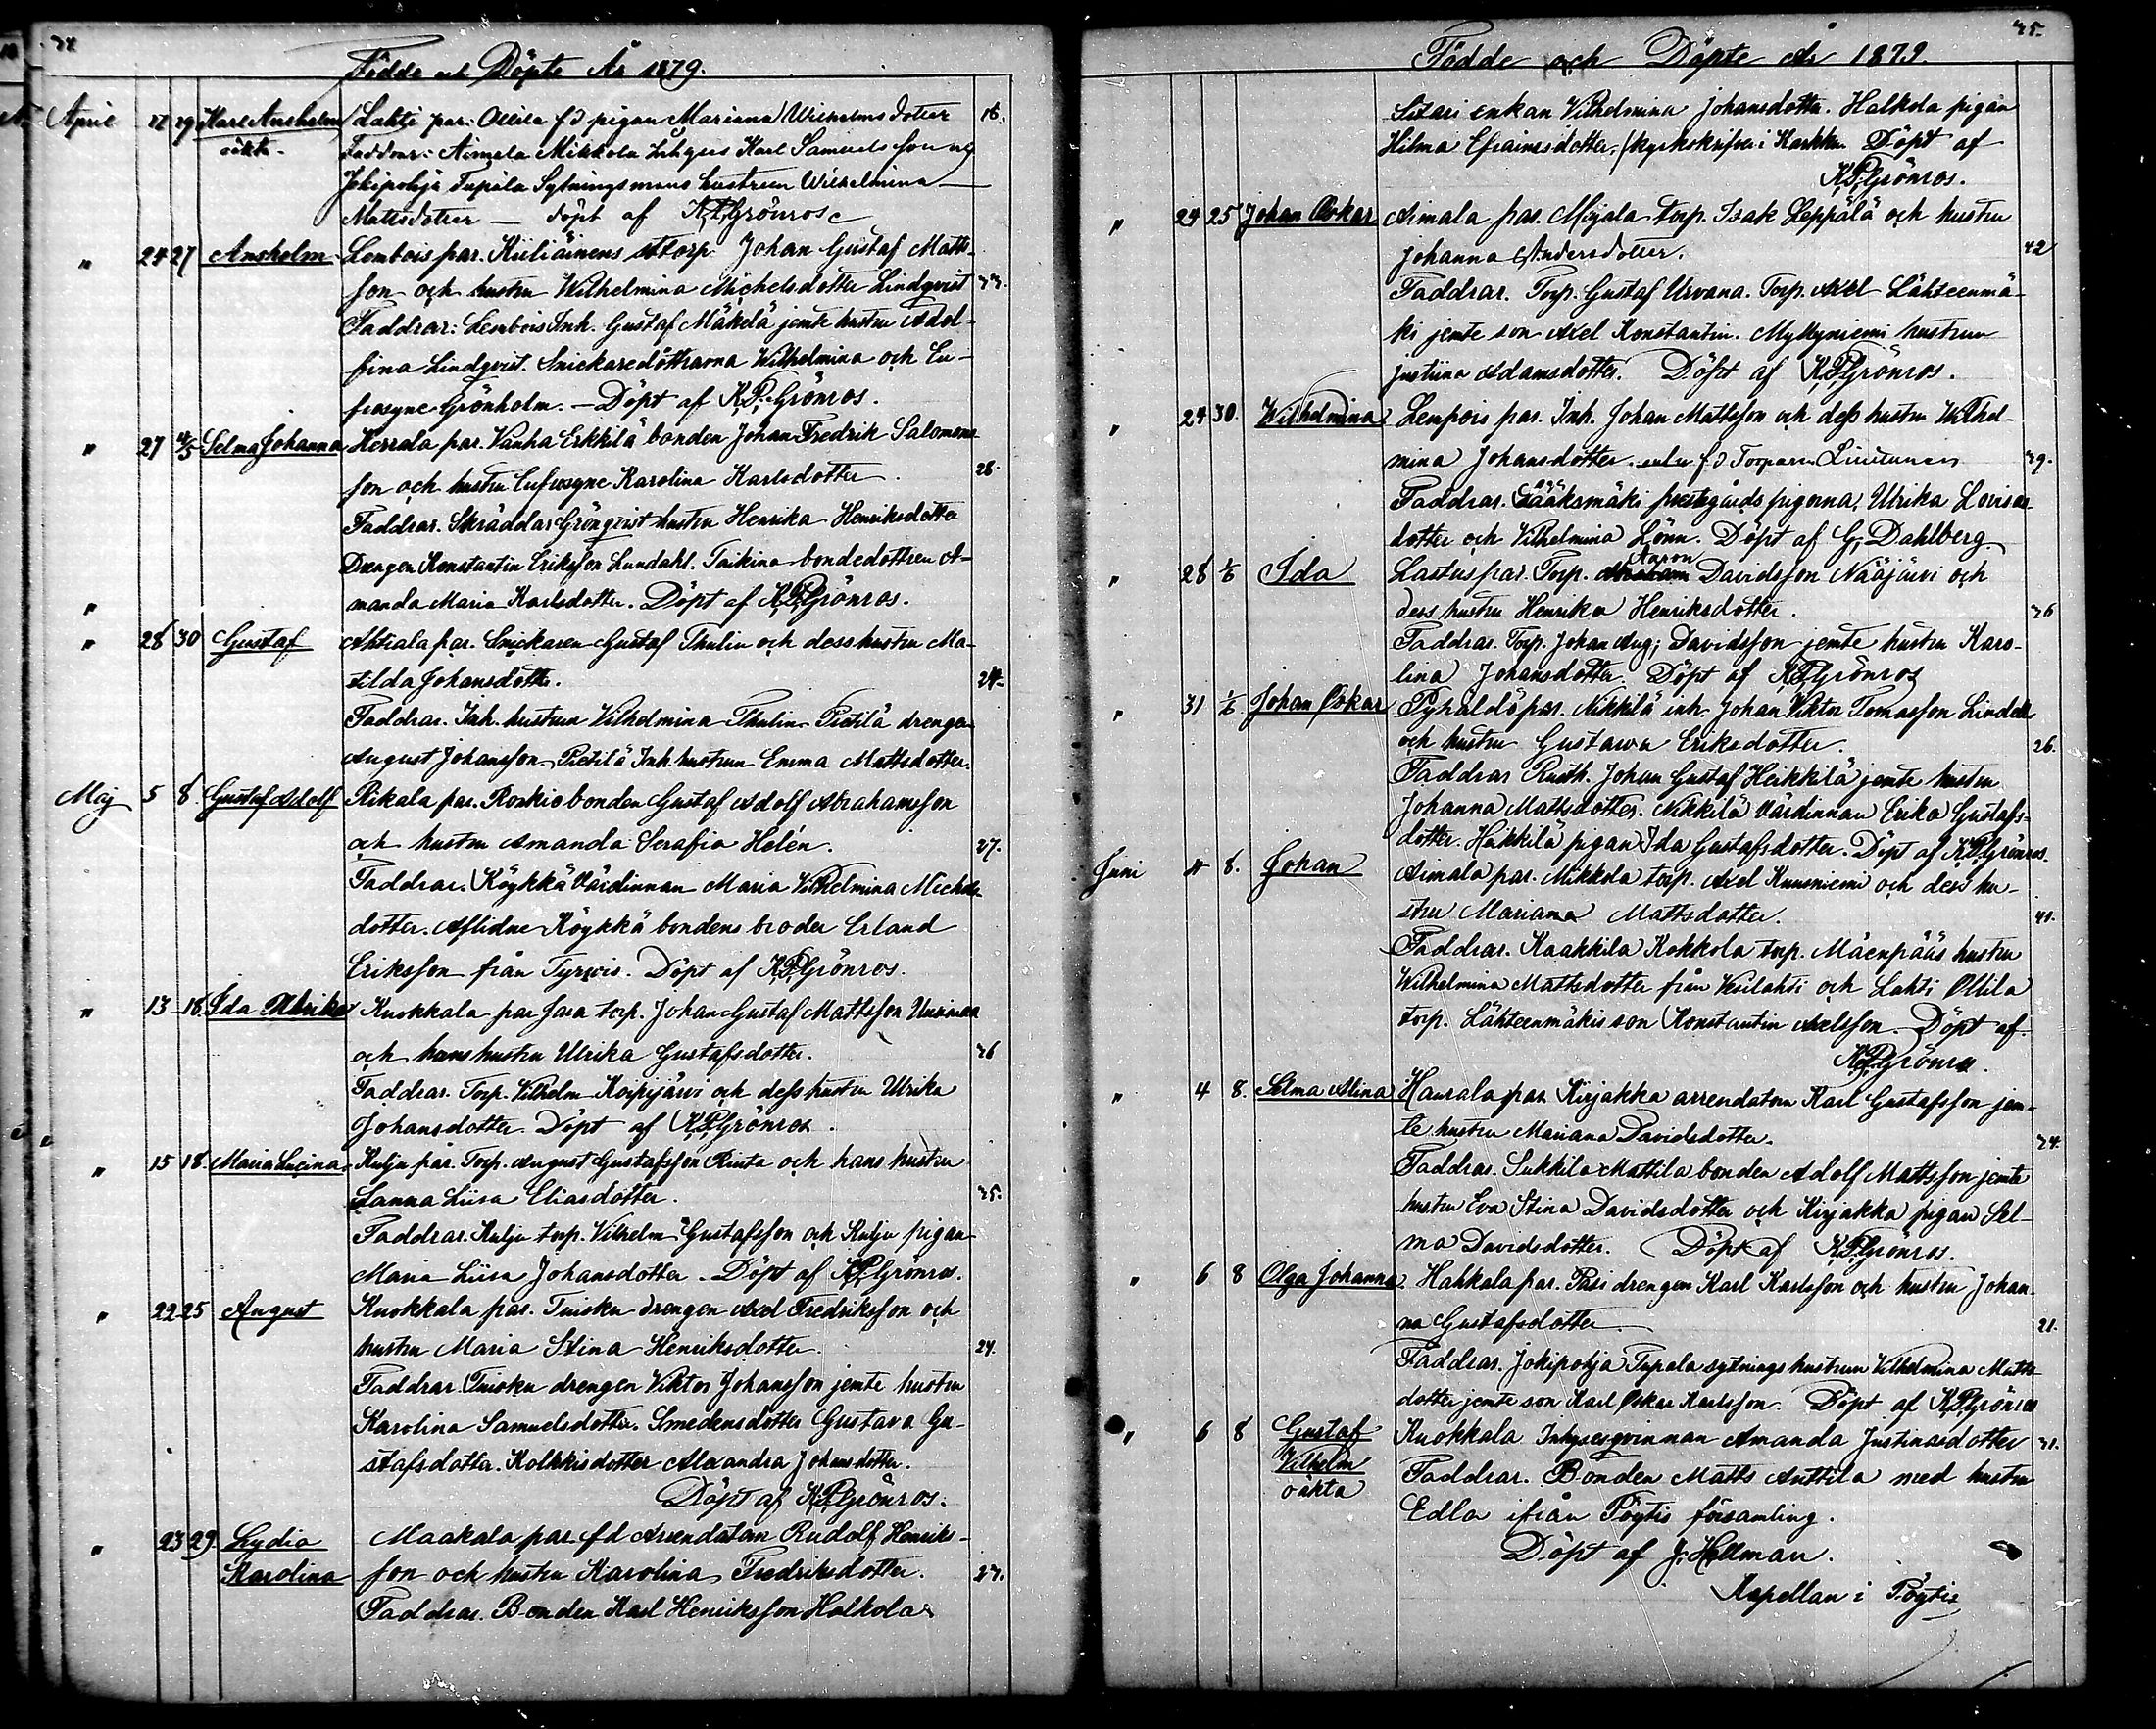 34
Födde och Döpte År 1879.
April 12 29 Karl Ansholm Lahti par. Ollila fd pigan Mariana Wilhelms dotter
oäkta. Faddrar: Aimala Mikkola Inhyses Karl Samuelsson och
Jokipohja Tupala Sytningsmans hustrun Wilhelmina
Mattsdotter — döpt af K.P. Grönros
" 24 27 Ansholm Lembois par. Kiiliäinens torp. Johan Gustaf Matts-
son och hustru Wilhelmina Michelsdotter Lindqvist 33.
Faddrar: Lembois Inh. Gustaf Mäkelä jemte hustru Adol-
fina Lindqvist. Snickaredöttrarna Wilhelmina och Eu-
frosyne Grönholm. — Döpt af K.P. Grönros.
" 27 4/5 Selma Johanna Herrala par. Vanha Erkkilä bonden Johan Fredrik Salomons-
son och hustru Eufrosyne Karolina Karlsdotter. 26.
Faddrar. Skräddar Grönqvist hustru Henrika Henriksdotter
Drengen Konstantin Eriksson Lundahl. Taikina bondedottren A-
" manda Maria Karlsdotter. Döpt af K.P. Grönros.
" 28 30 Gustaf Ahtiala par. Snickaren Gustaf Thulin och dess hustru Ma-
tilda Johansdotter. 24.
Faddrar. Inh. hustrun Vilhelmina Thulin. Pietilä drengen
August Johansson. Pietilä Inh. hustrun Emma Mattsdotter.
Maj 5 8 Gustaf Adolf Rikala par. Roskio bonden Gustaf Adolf Abrahamsson
och hustru Amanda Serafia Helén. 27.
Faddrar. Köykkä Värdinnan Maria Vilhelmina Michels-
dotter. Aflidne Köykkä bondens broder Erland
Eriksson från Tyrvis. Döpt af K.P. Grönros.
" 13 18 Ida Ulrika Kuokkala par Jara torp. Johan Gustaf Mattsson
och hans hustru Ulrika Gustafsdotter. 36
Faddrar. Torp. Vilhelm Koipijärvi och dess hustru Ulrika
Johansdotter. Döpt af K.P. Grönros.
" 15 18. Maria Lucina Kulju par. Torp. August Gustafsson Rinta och hans hustru
Sanna Liisa Eliasdotter. 35.
Faddrar. Kulju torp. Vilhelm Gustafsson och Kulju pigan
Maria Liisa Johansdotter. Döpt af K.P. Grönros.
" 22 25 August Kuokkala par. Tuisku drengen Axel Fredriksson och
hustru Maria Stina Henriksdotter. 24.
Faddrar. Tuisku drengen Viktor Johansson jemte hustru
Karolina Samuelsdotter. Smedensdotter Gustava Gu-
stafsdotter. Kolkkisdotter Alexandra Johansdotter.
Döpt af K.P. Grönros.
" 23 29 Lydia Maakala par. fd Arrendatorn Rudolf Henriks-
Karolina son och hustru Karolina Fredriksdotter. 27.
Faddrar. Bonden Karl Henriksson Halkola
35.
Födde och Döpte År 1879.
Sitari enkan Vilhelmina Johansdotter. Halkola pigan
Hilma Efraimsdotter, (kyrkoskrifven i Karkku. Döpt af
K.P. Grönros.
" 24 25 Johan Oskar Aimala par. Mijala torp. Isak Leppälä och hustru
Johanna Andersdotter. 42
Faddrar. Torp. Gustaf Urvana. Torp. Axel Lähteenmä-
ki jemte son Axel Konstantin. Myllyniemi hustrun
Justiina Adamsdotter. Döpt af K.P. Grönros.
" 24 30. Wilhelmina Lempois par. Inh. Johan Mattsson och dess hustru Wilhel-
mina Johansdotter. fd Torparen Liuttunen 39.
Faddrar. Sääksmäki prestgårds pigorna, Ulrika Lovisa-
dotter och Vilhelmina Lönn. Döpt af G. Dahlberg.
Aaron
" 28 1/6 Ida Lastus par. Torp. Abraham Davidsson Nääjärvi och
dess hustru Henrika Henriksdotter. 36
Faddrar. Torp. Johan Aug; Davidsson jemte hustru Karo-
lina Johansdotter. Döpt af K.P. Grönros
" 31 1/6 Johan Oskar Pyhältö par. Nikkilä inh. Johan Viktor Tomasson Lindell
och hustru Gustawa Eriksdotter. 26.
Faddrar Rusth. Johan Gustaf Heikkilä jemte hustru
Johanna Mattsdotter. Nikkilä Värdinnan Erika Gustafs-
dotter. Heikkilä pigan Ida Gustafsdotter. Döpt af K.P. Grönros.
Juni 4 8. Johan Aimala par. Mikkola torp. Axel Kuusniemi och dess hu-
stru Mariana Mattsdotter. 41.
Faddrar. Kaakkila Kokkola torp. Mäenpääs hustru
Wilhelmina Mattsdotter från Vesilahti och Lahti Ollila
torp. Lähteenmäkis son Konstantin Axelsson. Döpt af
K.P. Grönros.
" 4 8. Selma Alina Haurala par. Kirjakka arrendatorn Karl Gustafsson jem-
te hustru Mariana Davidsdotter. 34.
Faddrar. Sukkila Mattila bonden Adolf Mattsson jemte
hustru Eva Stina Davidsdotter och Kirjakka pigan Sel-
ma Davidsdotter. Döpt af K.P. Grönros.
" 6 8 Olga Johanna Hahkala par. Pasi drengen Karl Karlsson och hustru Johan-
na Gustafsdotter 21.
Faddrar. Jokipohja Tupala sytnings hustrun Vilhelmina Matts-
dotter jemte son Karl Oskar Karlsson. Döpt af K.P. Grönros
" 6 8 Gustaf Kuokkala Inhysesqvinnan Amanda Justinasdotter 31.
Vilhelm Faddrar. Bonden Matts Anttila med hustru
oäkta Edla ifrån Pöytis församling.
Döpt af J. Hellman.
Kapellan i Pöytis